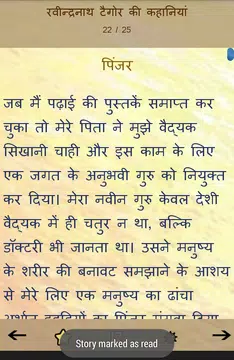 रवीन्द्रनाथ टैगोर की कहानियां
22 / 25
पिंजर
जब मैं पढ़ाई की पुस्तकें समाप्त कर
चुका तो मेरे पिता ने मुझे वैद्यक
सिखानी चाही और इस काम के लिए
एक जगत के अनुभवी गुरु को नियुक्त
कर दिया। मेरा नवीन गुरु केवल देशी
वैद्यक में ही चतुर न था, बल्कि
डॉक्टरी भी जानता था। उसने मनुष्य
के शरीर की बनावट समझाने के आशय
से मेरे लिए एक मनुष्य का ढांचा
अर्थात् हड्डियों का पिंजर मंगवा दिया
Story marked as read